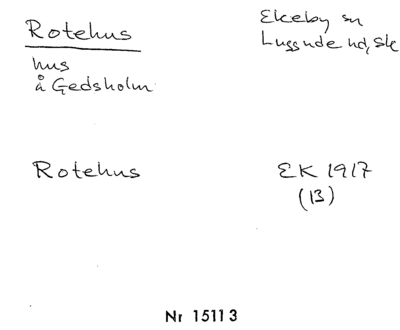 Rotehus
Ekeby sn
Luggude hd, Sk
hus
å Gedsholm
Rotehus
EK 1917
(13)
Nr 15113